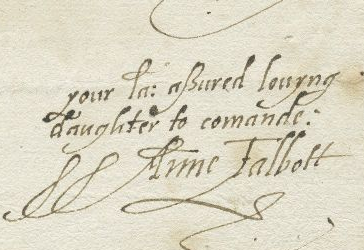 your la: assured lovyng
daughter to comande:
Anne Talbott